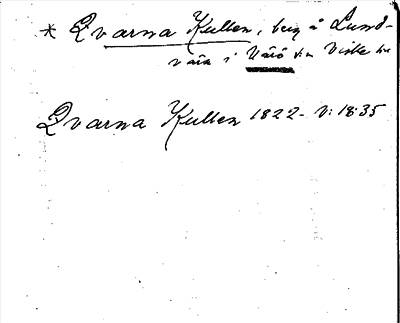 * Qvarna Kullen, berg å Lund-
vära i Värö sn Viske hd
Qvarna Kullen 1822 - V: 18:35